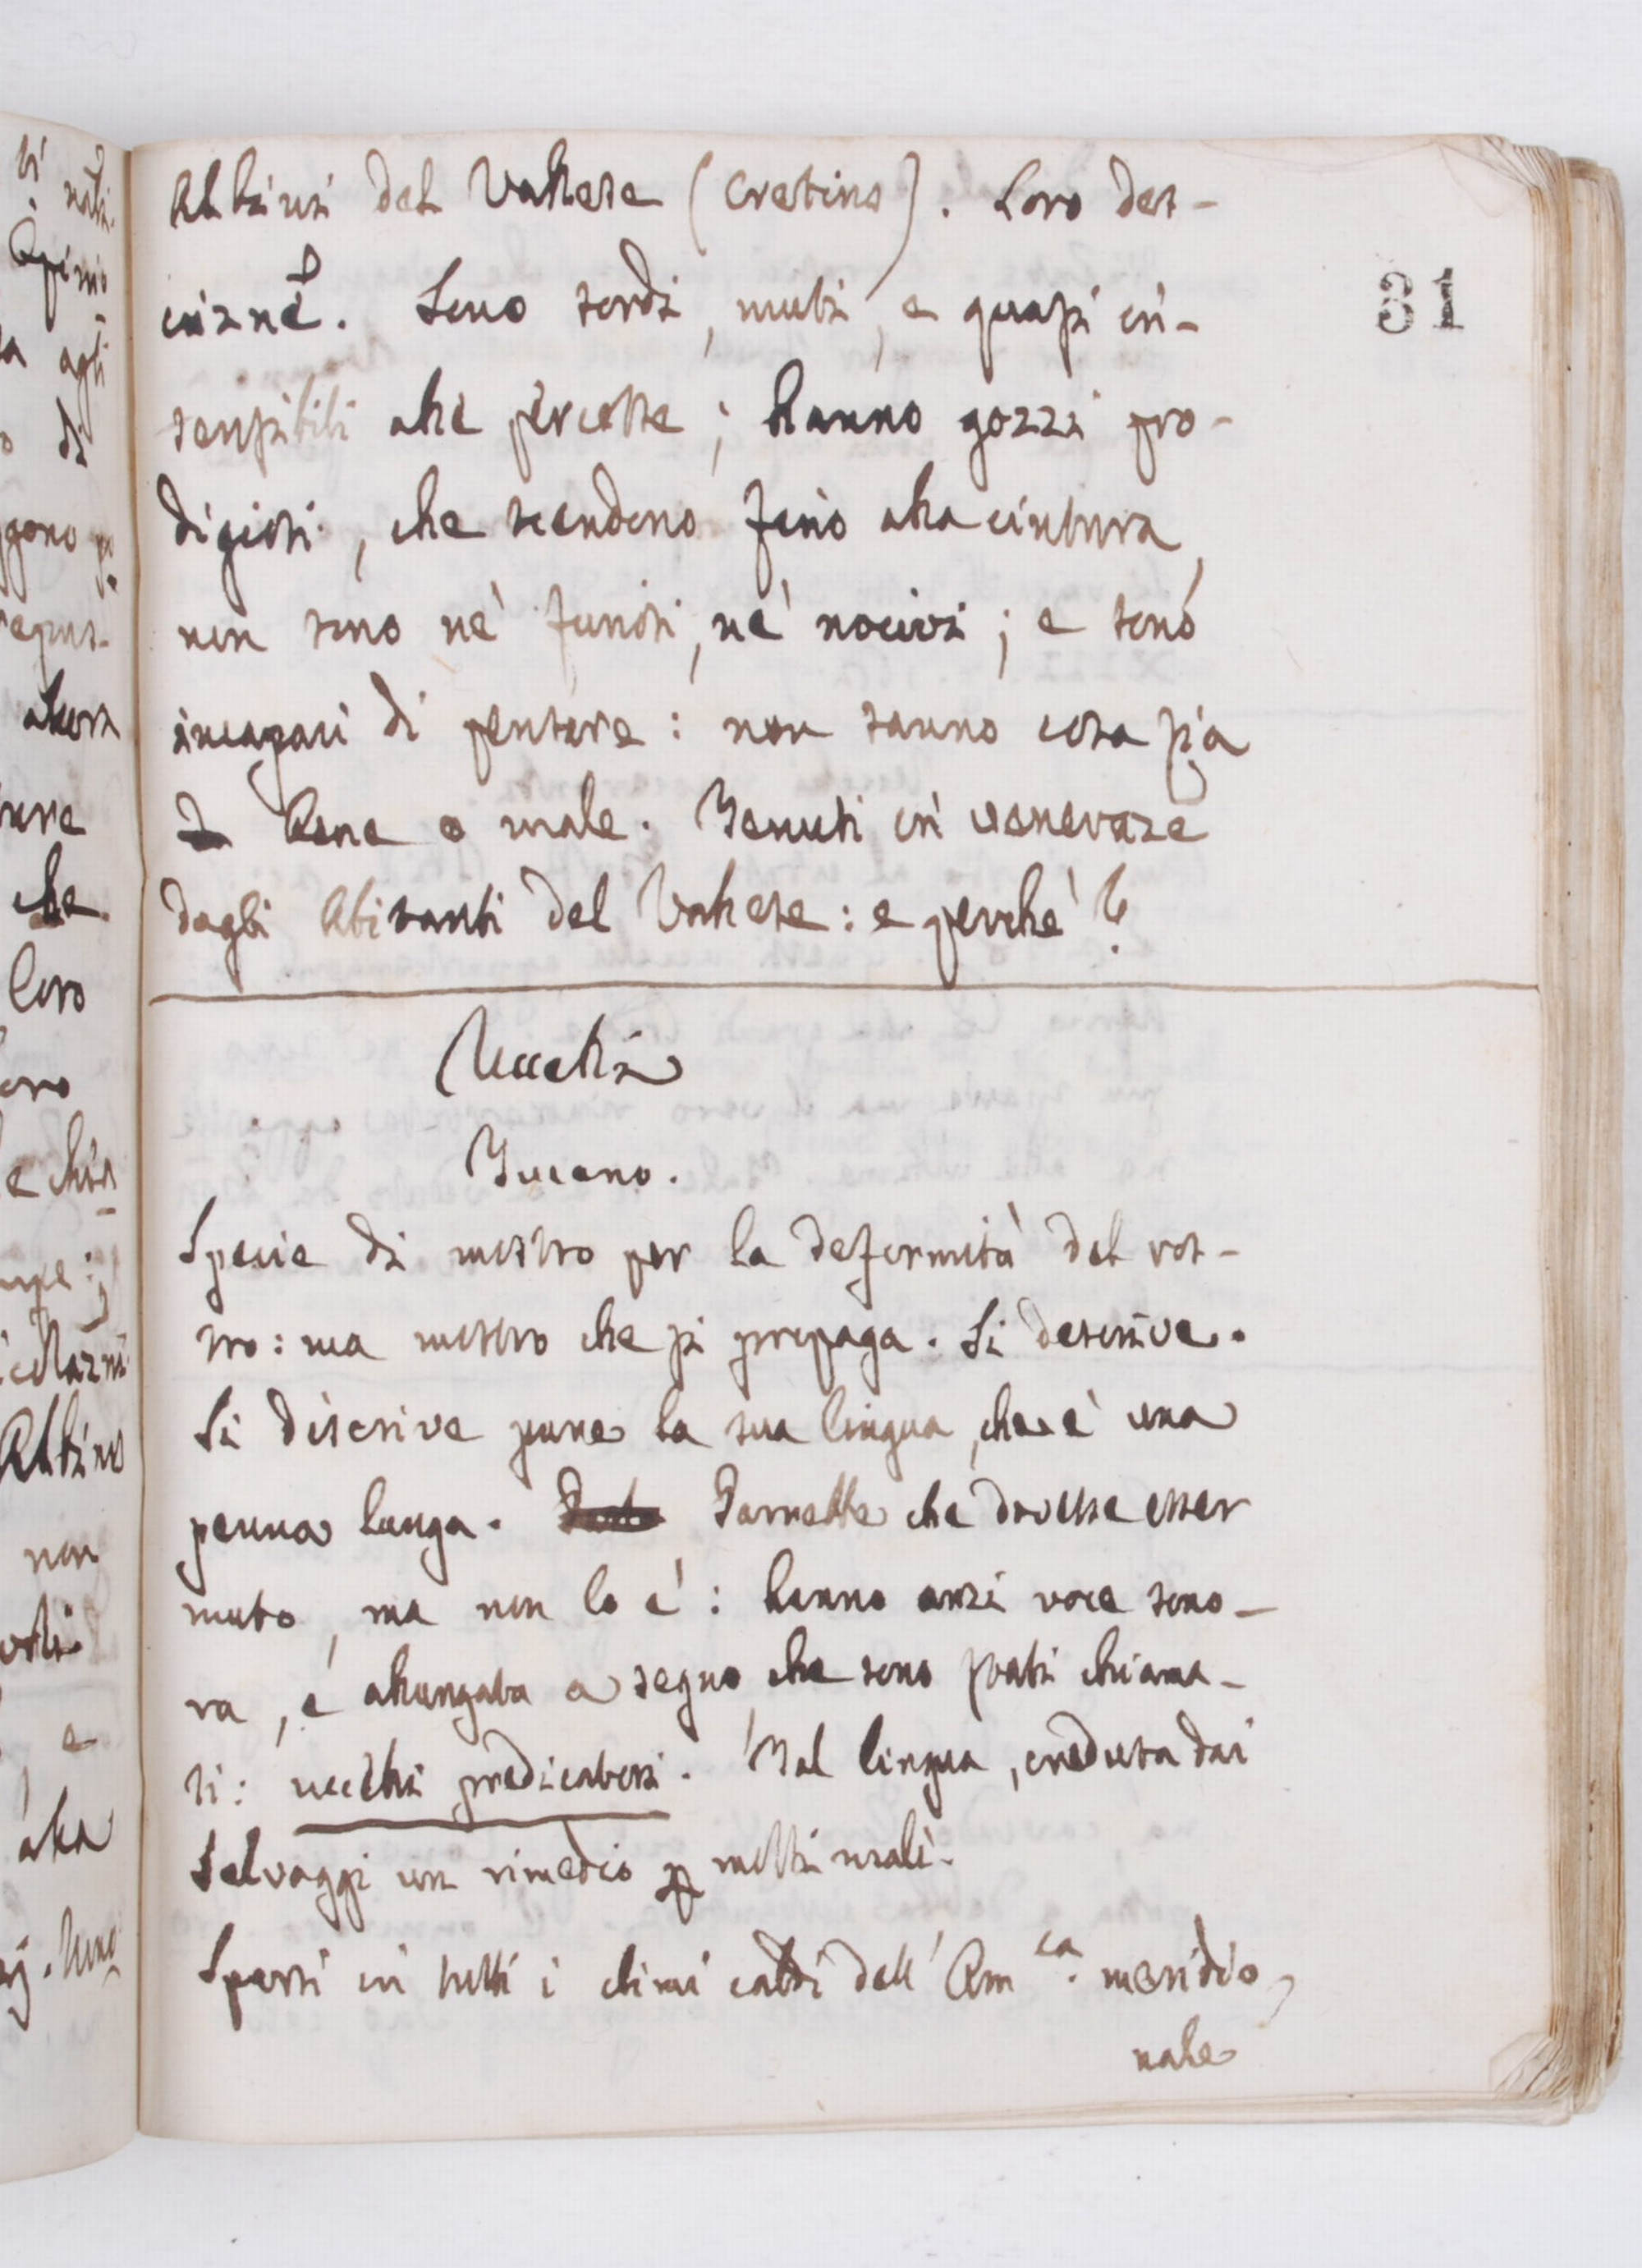 Albini del Vallese (Cretins). Loro des-
crizne. Sono sordi, muti, e quasi in-
sensibili alle percosse; hanno gozzi pro-
digiosi, che scendono fino alla cintura,
non sono nè furiosi, nè nocivi; e sono
incapaci di pensare: non sanno cosa sia
bene o male. Tenuti in veneraze
dagli Abitanti del Vallese: e perchè?
31
Uccelli
Tucano.
Specie di mostro per la deformità del ros-
tro: ma mostro che si propaga. Si descrive.
Si discrive pure la sua lingua, che è una
penna lunga. Parrebbe che dovesse esser
muto, ma non lo è: hanno anzi voce sono-
ra, e allungata a segno che sono stati chiama-
ti: uccelli predicatori. Tal lingua, creduta dai
Selvaggi un rimedio p molti mali.
Sparsi in tutti i climi caldi dell'Amca. meridio
nale